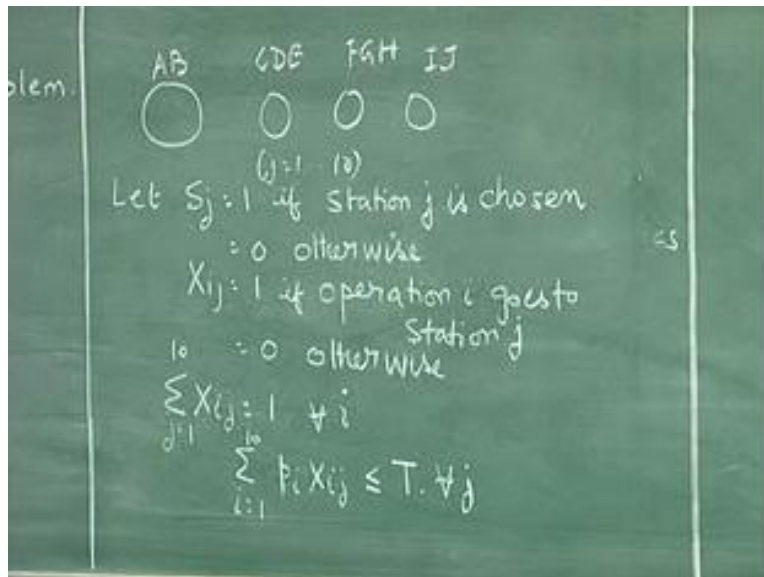 AB CDE FGH IJ
olem.
(j=1 10)
Let Sj = 1 if station j is chosen
= 0 otherwise
Xij = 1 if operation i goes to
Station j
= 0 otherwise
10
∑ Xij = 1 ∀ i
j=1
10
∑ pi Xij ≤ T. ∀ j
i=1
es